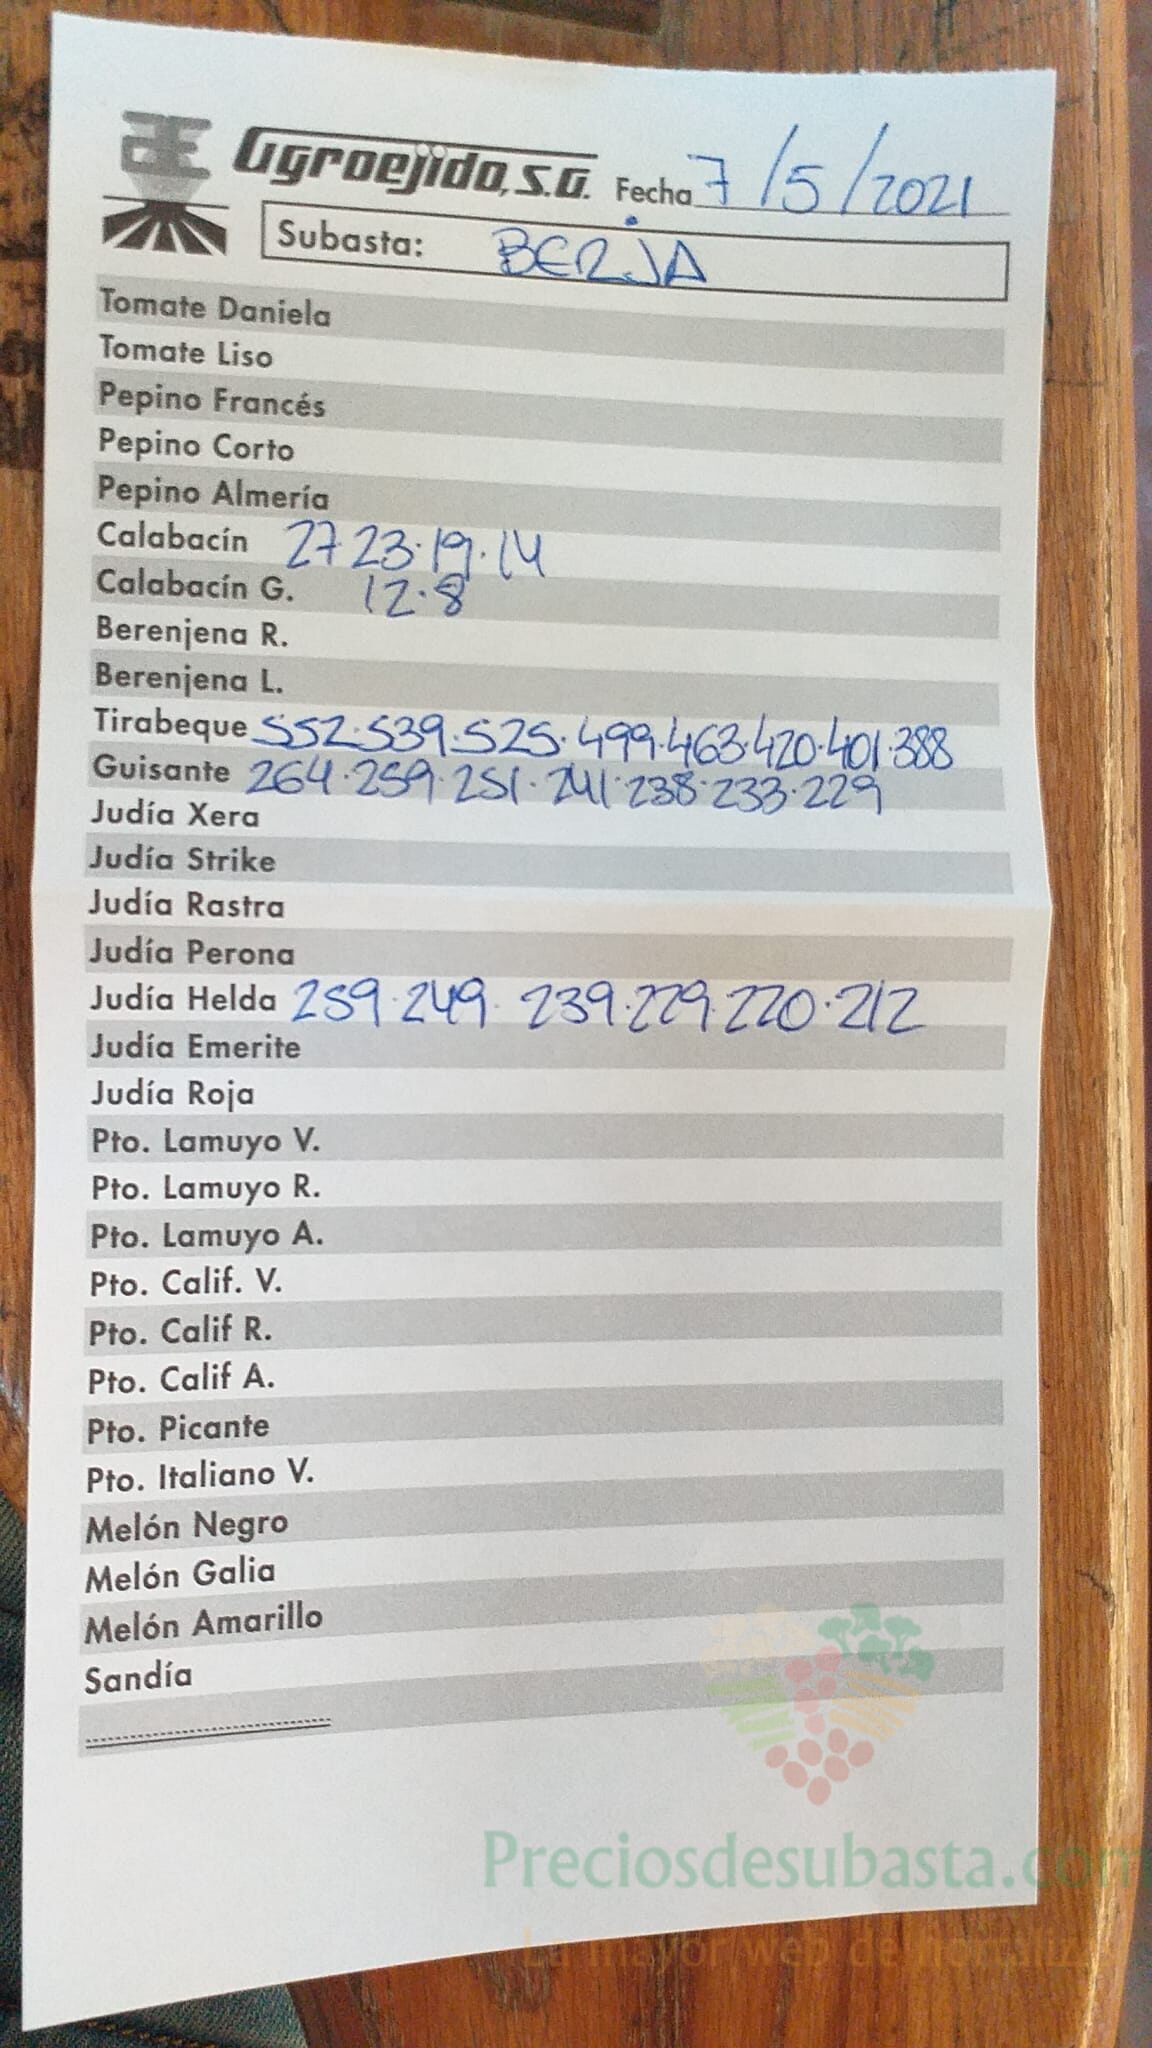 Agroejido, S.A. Fecha 7/5/2021
Subasta: BERJA
Tomate Daniela
Tomate Liso
Pepino Francés
Pepino Corto
Pepino Almería
Calabacín 27 23·19·14
Calabacín G. 12·8
Berenjena R.
Berenjena L.
Tirabeque 552·539·525·499·463·420·401·388
Guisante 264·259·251·241·238·233·229
Judía Xera
Judía Strike
Judía Rastra
Judía Perona
Judía Helda 259·249·239·229·220·212
Judía Emerite
Judía Roja
Pto. Lamuyo V.
Pto. Lamuyo R.
Pto. Lamuyo A.
Pto. Calif. V.
Pto. Calif R.
Pto. Calif A.
Pto. Picante
Pto. Italiano V.
Melón Negro
Melón Galia
Melón Amarillo
Sandía
Preciosdesubasta.com
La mayor web de